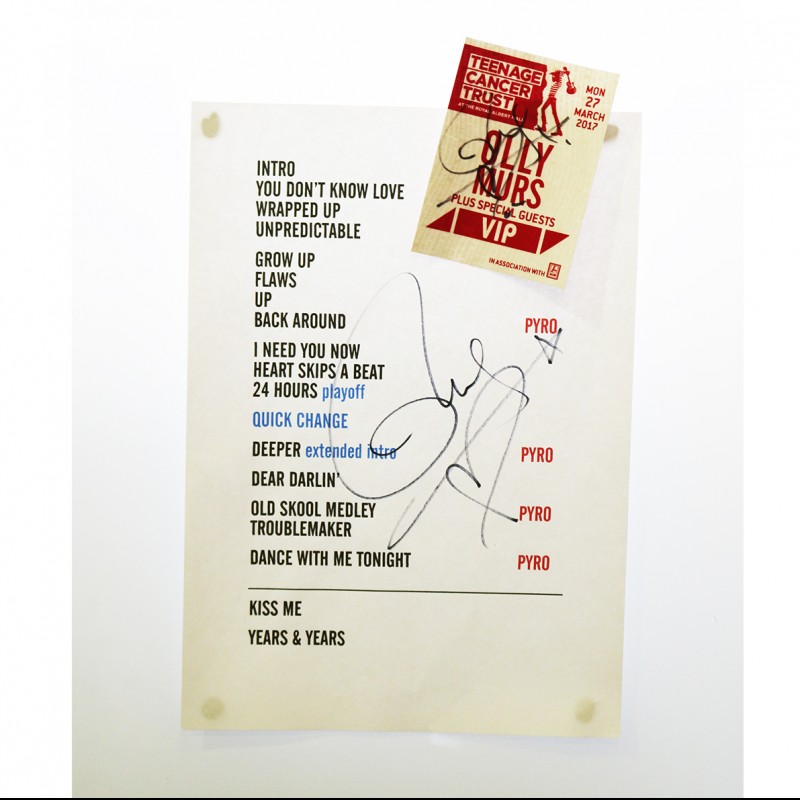 TEENAGE
CANCER
TRUST
AT THE ROYAL ALBERT HALL
MON
27
MARCH
2017
OLLY
MURS
PLUS SPECIAL GUESTS
VIP
IN ASSOCIATION WITH
INTRO
YOU DON'T KNOW LOVE
WRAPPED UP
UNPREDICTABLE
GROW UP
FLAWS
UP
BACK AROUND PYRO
I NEED YOU NOW
HEART SKIPS A BEAT
24 HOURS playoff
QUICK CHANGE
DEEPER extended intro PYRO
DEAR DARLIN'
OLD SKOOL MEDLEY PYRO
TROUBLEMAKER
DANCE WITH ME TONIGHT PYRO
KISS ME
YEARS & YEARS